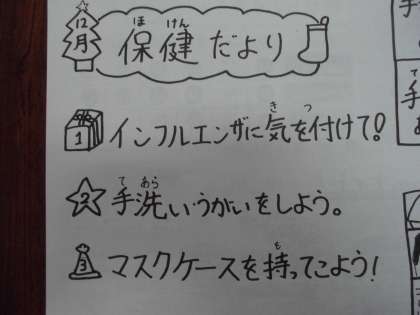 12月 保健だより
1 インフルエンザに気を付けて!
2 手洗い・うがいをしよう。
3 マスクケースを持ってこよう!